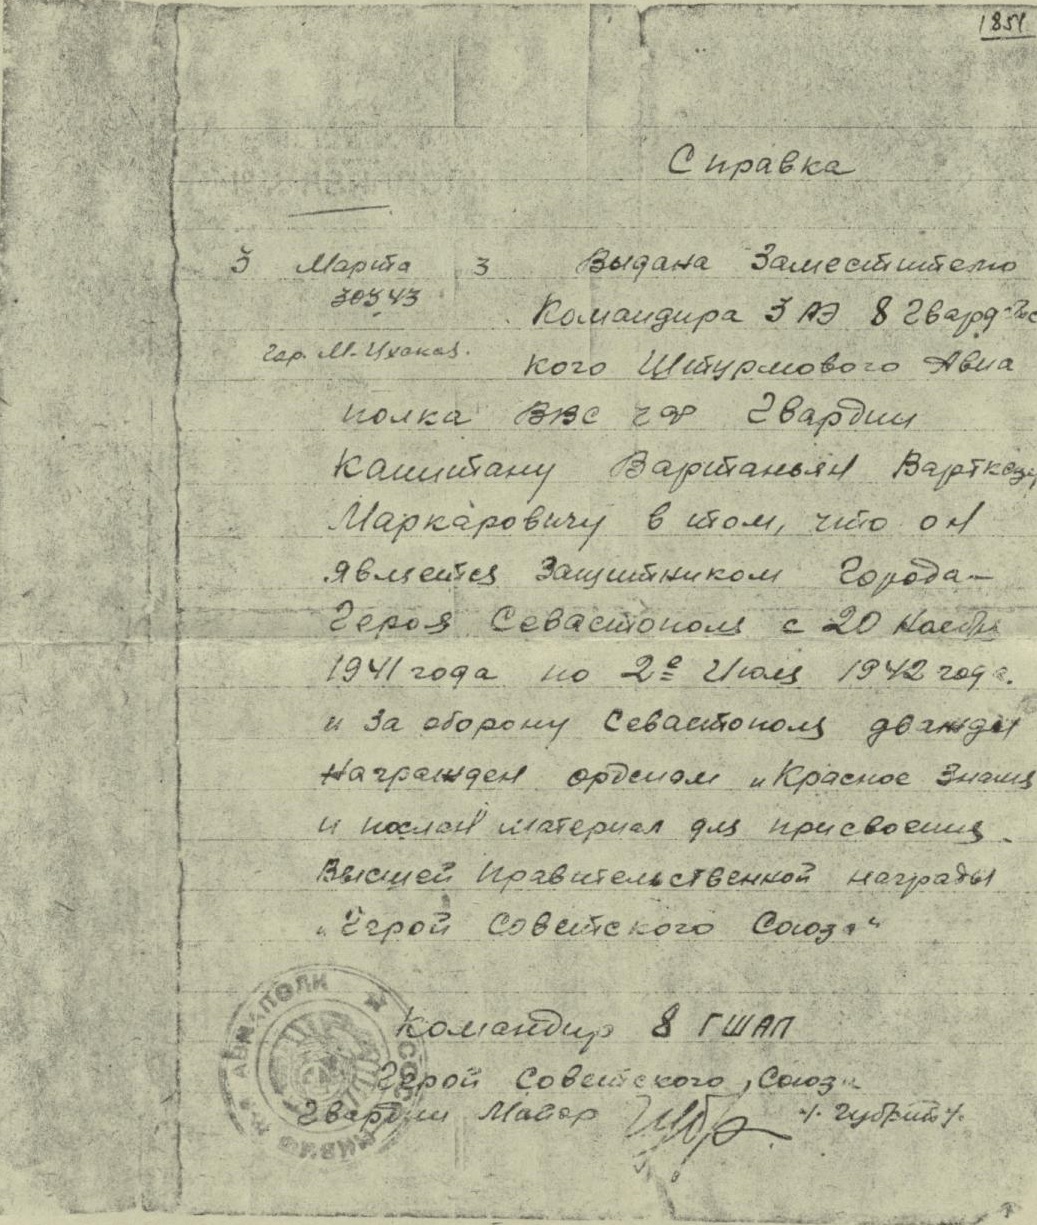 1851
Справка
3 Марта 3 Выдана Заместителю
30343 Командира 3 АЭ 8 Гвардейс
гор. М. Цхакая. кого Штурмового Авиа
полка ВВС ЧФ Гвардии
Капитану ВартаньянВарткезу
Маркаровичу в том, что он
является Защитником Города-
Героя Севастополя с 20 Ноября
1941 года по 2е Июля 1942 года.
и За оборону Севастополя дважды
Награжден орденом „Красное Знамя
и послан материал для присвоения
Высшей Правительственной награды
„Герой Советского Союза“
Командир 8 ГШАП
Герой Советского Союза
Гвардии Майор /Губрий/
АВИАПОЛК СССР